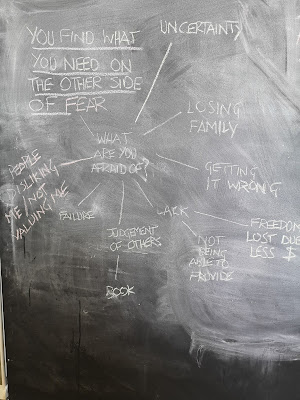 YOU FIND WHAT
YOU NEED ON
THE OTHER SIDE
OF FEAR
UNCERTAINTY
LOSING
FAMILY
WHAT
ARE YOU
AFRAID OF?
GETTING
IT WRONG
PEOPLE
DISLIKING
ME/NOT
VALUING ME
FAILURE
JUDGEMENT
OF OTHERS
BOOK
LACK
NOT
BEING
ABLE TO
PROVIDE
FREEDOM
LOST DUE
LESS $